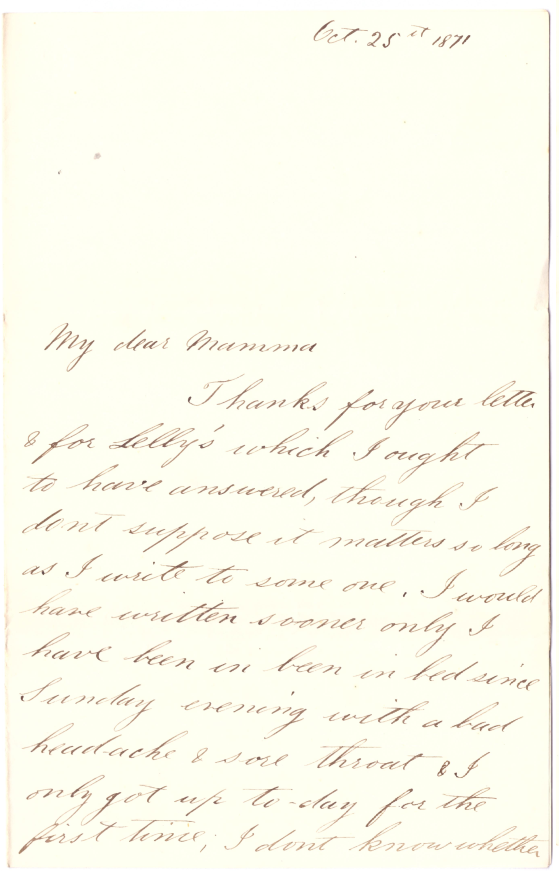 Oct. 25th 1871
My dear Mamma
Thanks for your letter
& for Lelly's which I ought
to have answered, though I
dont suppose it matters so long
as I write to some one. I would
have written sooner only I
have been in been in bed since
Sunday evening with a bad
headache & sore throat & I
only got up to-day for the
first time; I dont know whether